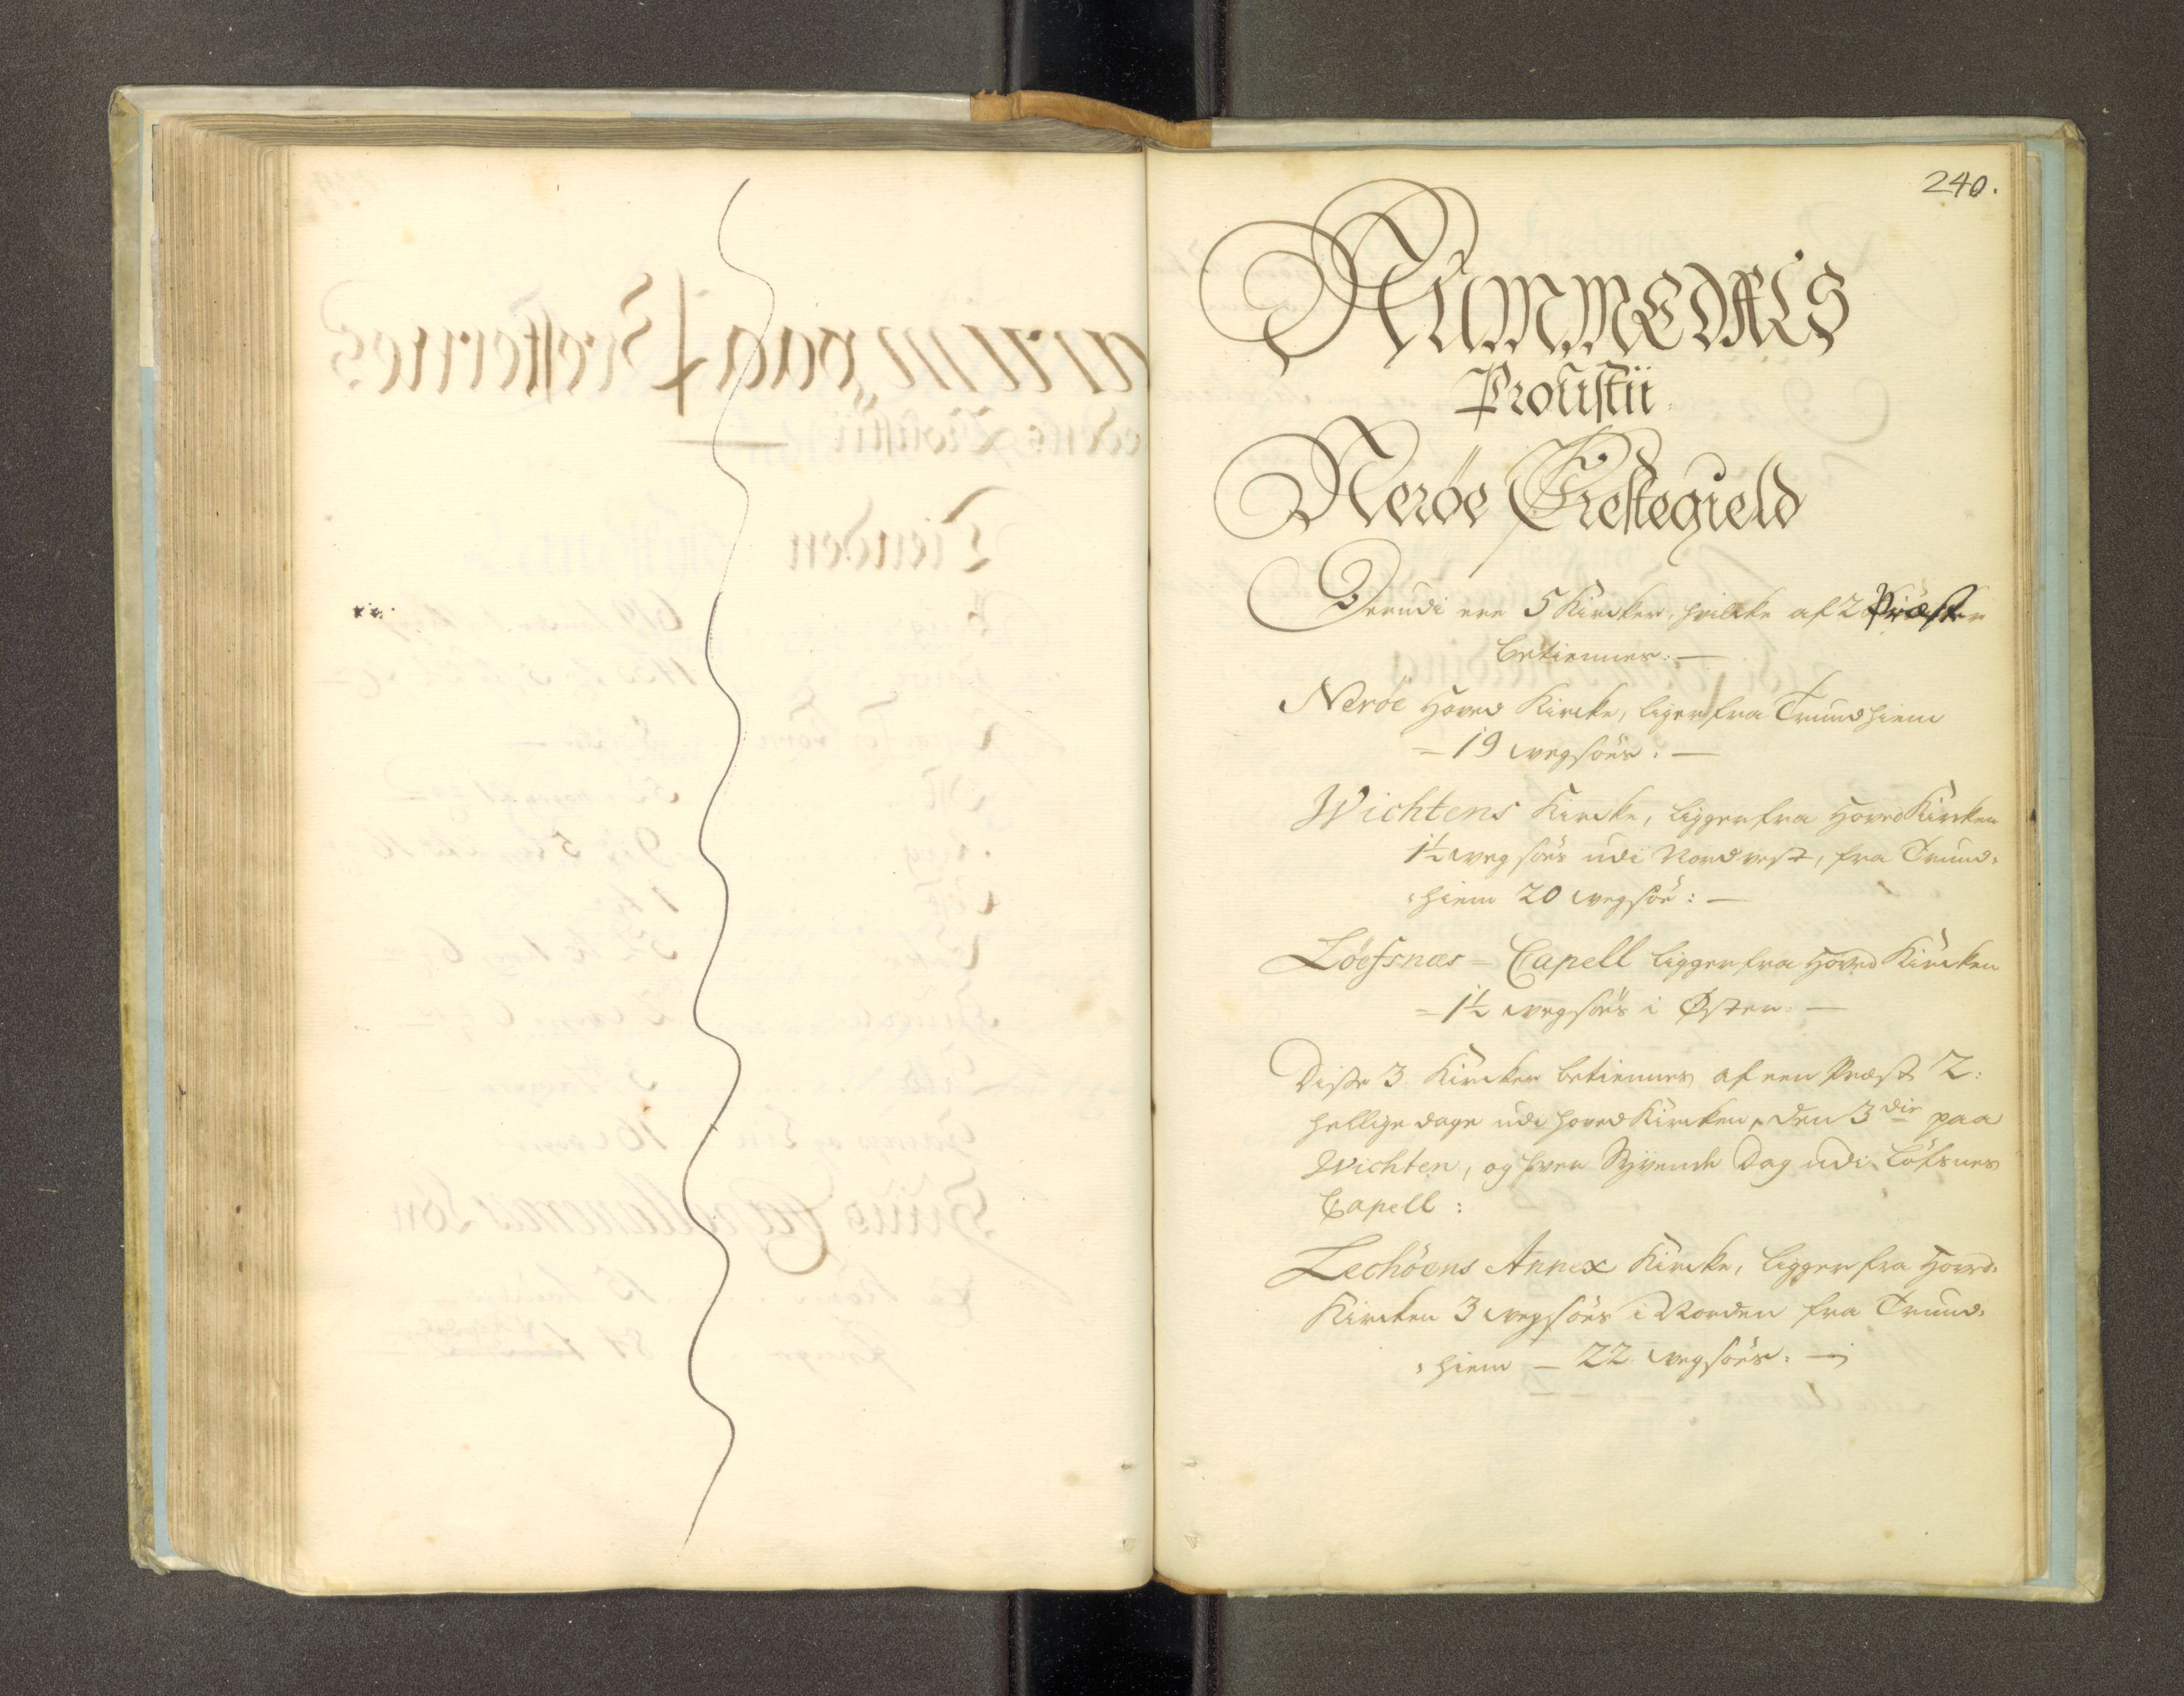 240.
NUMMEDALS
Proustii
Nerøe Prestegield
Derudi ere 5 Kircker, hvilcke af 2 Præster
betiennes: —
Nerøe Hoved Kircke, liger fra Trundhiem
= 19 wegsöes: —
Wichtens Kircke, ligger fra Hoved Kircken
1½ weg söes udi Nordvest, fra Trund=
=hiem 20 wegsöe: —
Löefsnæs = Capell ligger fra Hoved Kircken
= 1½ wegsöes i Øster —
Disse 3 Kircker betiennes af een Præst 2:
hellige dage udi hoved Kircken, den 3die paa
Wichten, og hver Syvende Dag udi Löfsnes
Capell:
Lechöens Annex Kircke, ligger fra Hoved=
Kircken 3 wegsöes i Norden fra Trund=
=hiem — 22 wegsöes: —